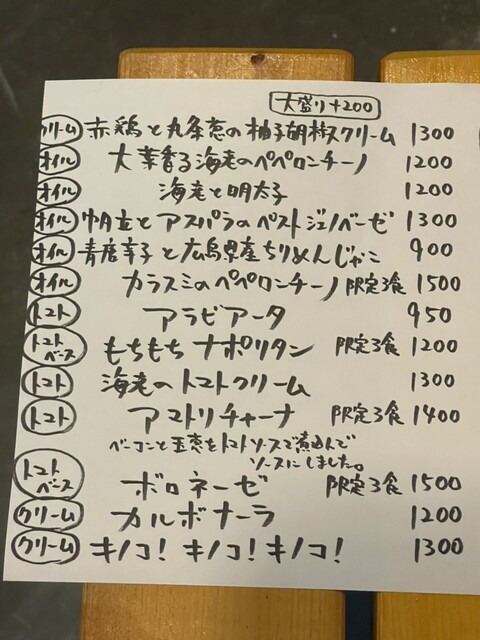 大盛り+200
クリーム 赤鶏と九条葱の柚子胡椒クリーム 1300
オイル 大葉香る海老のペペロンチーノ 1200
オイル 海老と明太子 1200
オイル 帆立とアスパラのペストジェノベーゼ 1300
オイル 青唐辛子と広島県産ちりめんじゃこ 900
オイル カラスミのペペロンチーノ 限定3食 1500
トマト アラビアータ 950
トマトベース もちもちナポリタン 限定3食 1200
トマト 海老のトマトクリーム 1300
トマト アマトリチャーナ 限定3食 1400
ベーコンと玉葱をトマトソースで煮込んで
ソースにしました。
トマトベース ボロネーゼ 限定3食 1500
クリーム カルボナーラ 1200
クリーム キノコ!キノコ!キノコ! 1300